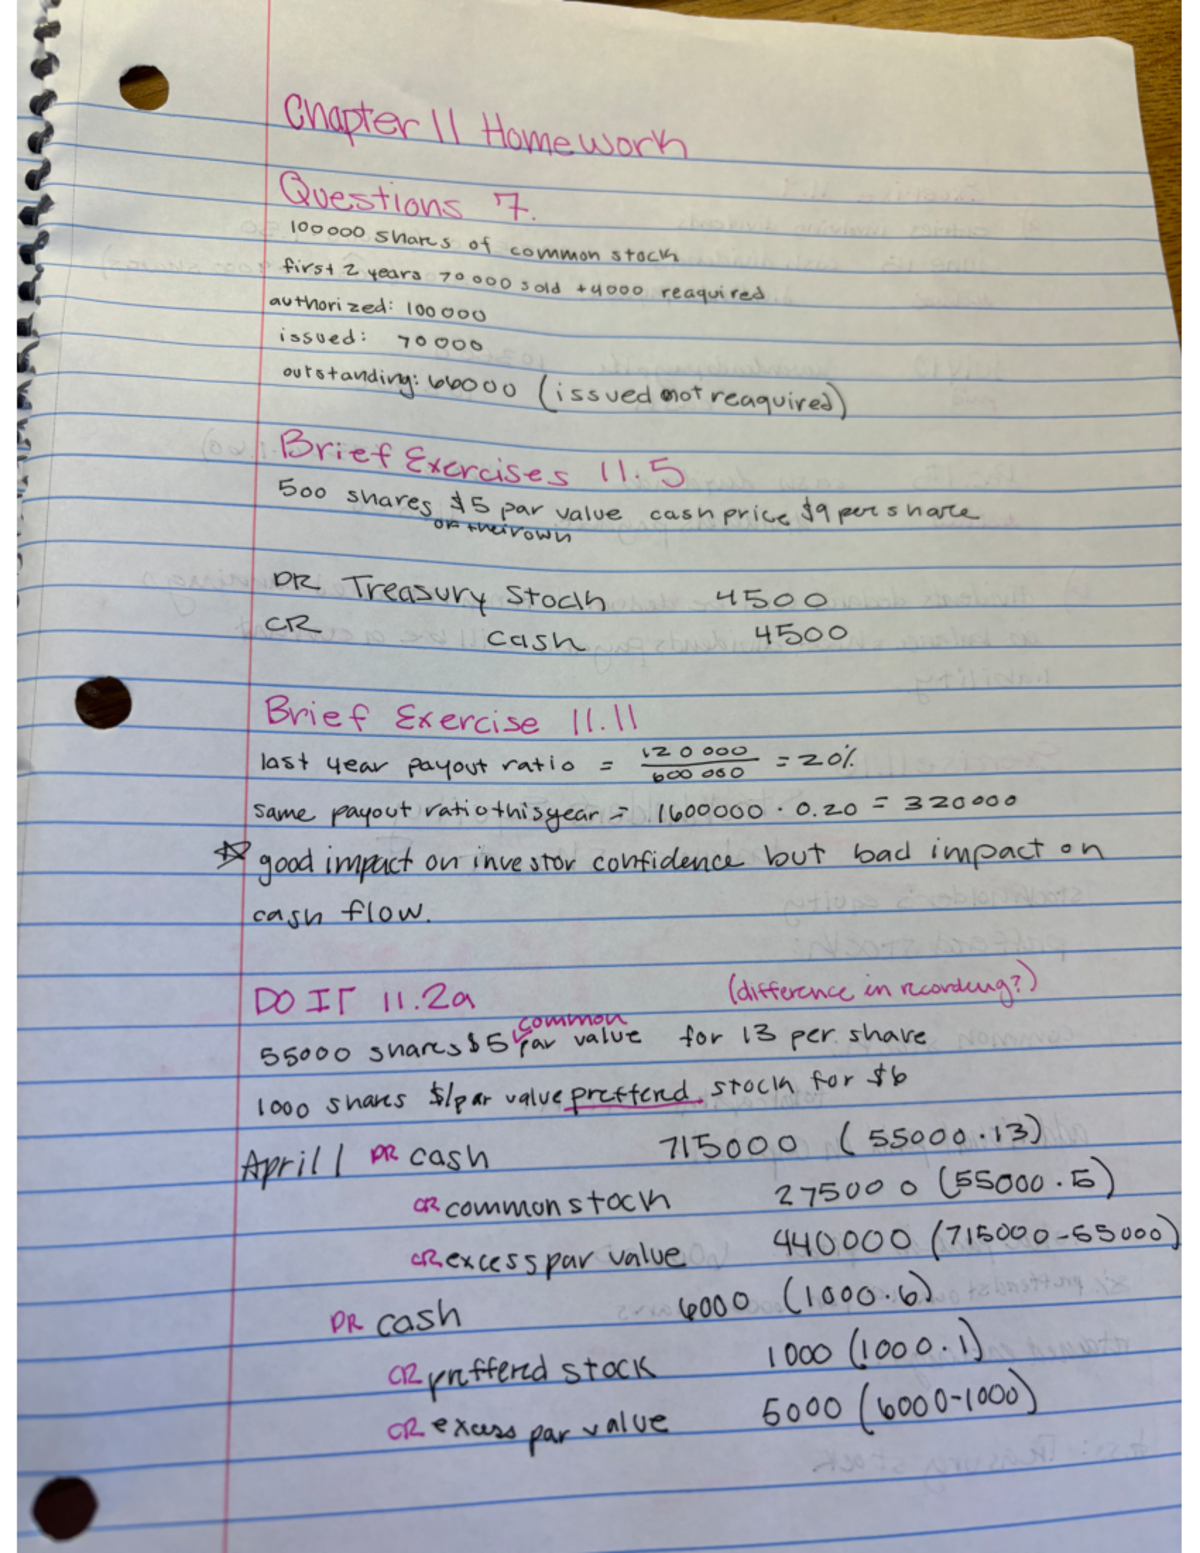 Chapter 11 Homework
Questions 7.
100000 shares of common stock
first 2 years 70000 sold +4000 reaquired
authorized: 100000
issued: 70000
outstanding: 66000 (issued not reaquired)
Brief Exercises 11.5
500 shares $5 par value cash price $9 per share
of their own
DR Treasury Stock 4500
CR cash 4500
Brief Exercise 11.11
last year payout ratio = 120000/600000 = 20%
same payout ratio this year = 1600000 · 0.20 = 320000
☆ good impact on investor confidence but bad impact on
cash flow.
DO IT 11.2a (difference in recording?)
common
55000 shares $5 par value for 13 per share
1000 shares $1 par value preffend stock for $6
April 1 DR cash 715000 (55000·13)
CR common stock 275000 (55000·5)
CR excess par value 440000 (715000-55000)
DR cash 6000 (1000·6)
CR preffered stock 1000 (1000·1)
CR excess par value 5000 (6000-1000)